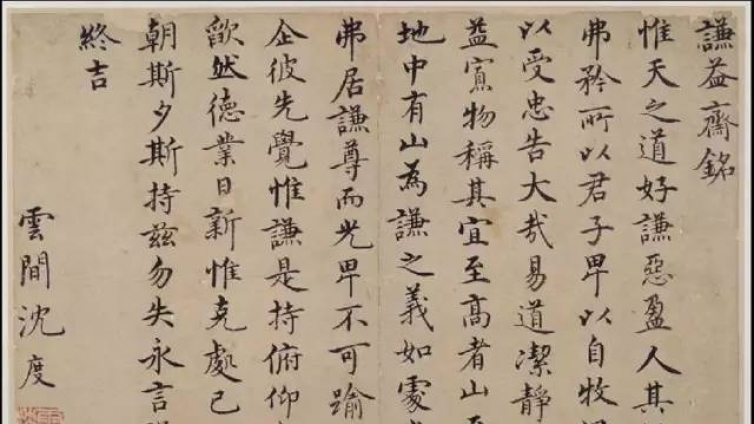 謙益齋銘
惟天之道好謙惡盈人其
弗矜所以君子卑以自牧
以受忠告大哉易道潔靜
益寡物稱其宜至高者山
地中有山為謙之義如處
弗居謙尊而光卑不可踰
企彼先覺惟謙是持俯仰
欿然德業日新惟克處己
朝斯夕斯持茲勿失永言
終吉
雲間沈度